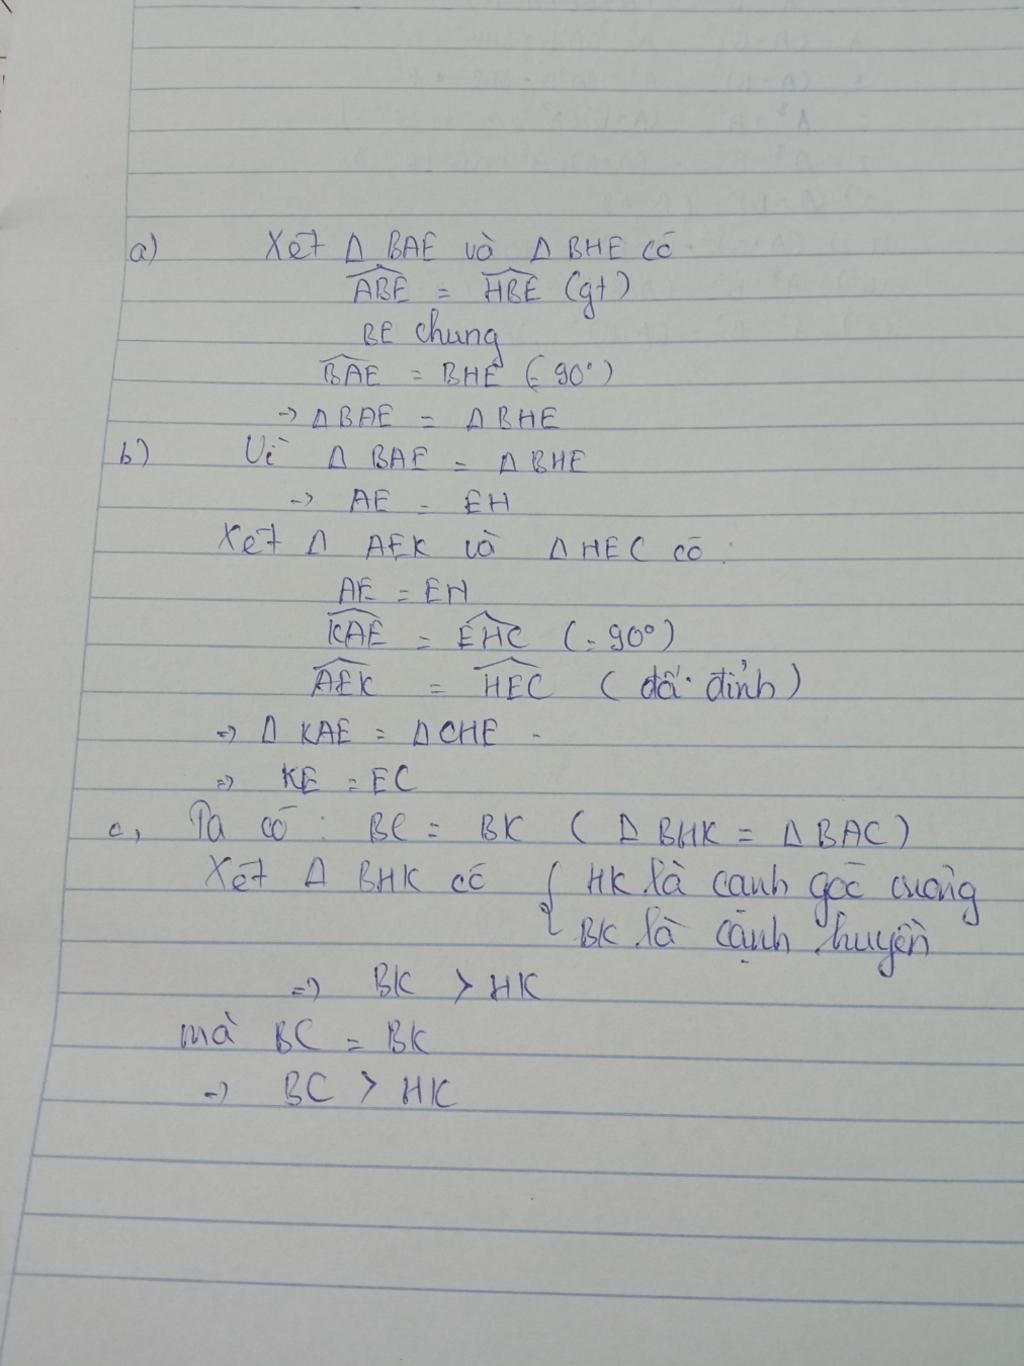 a) Xét Δ BAE và Δ BHE có
ABE = HBE (gt)
BE chung
BAE = BHE (= 90°)
→ Δ BAE = Δ BHE
b) Vì Δ BAE = Δ BHE
→ AE = EH
Xét Δ AEK và Δ HEC có :
AE = EH
KAE = EHC (= 90°)
AEK = HEC ( đối đỉnh )
=> Δ KAE = Δ CHE
=> KE = EC
c, Ta có : BC = BK ( Δ BHK = Δ BAC )
Xét Δ BHK có { HK là cạnh góc vuông
BK là cạnh huyền
=> BK > HK
mà BC = BK
=> BC > HK